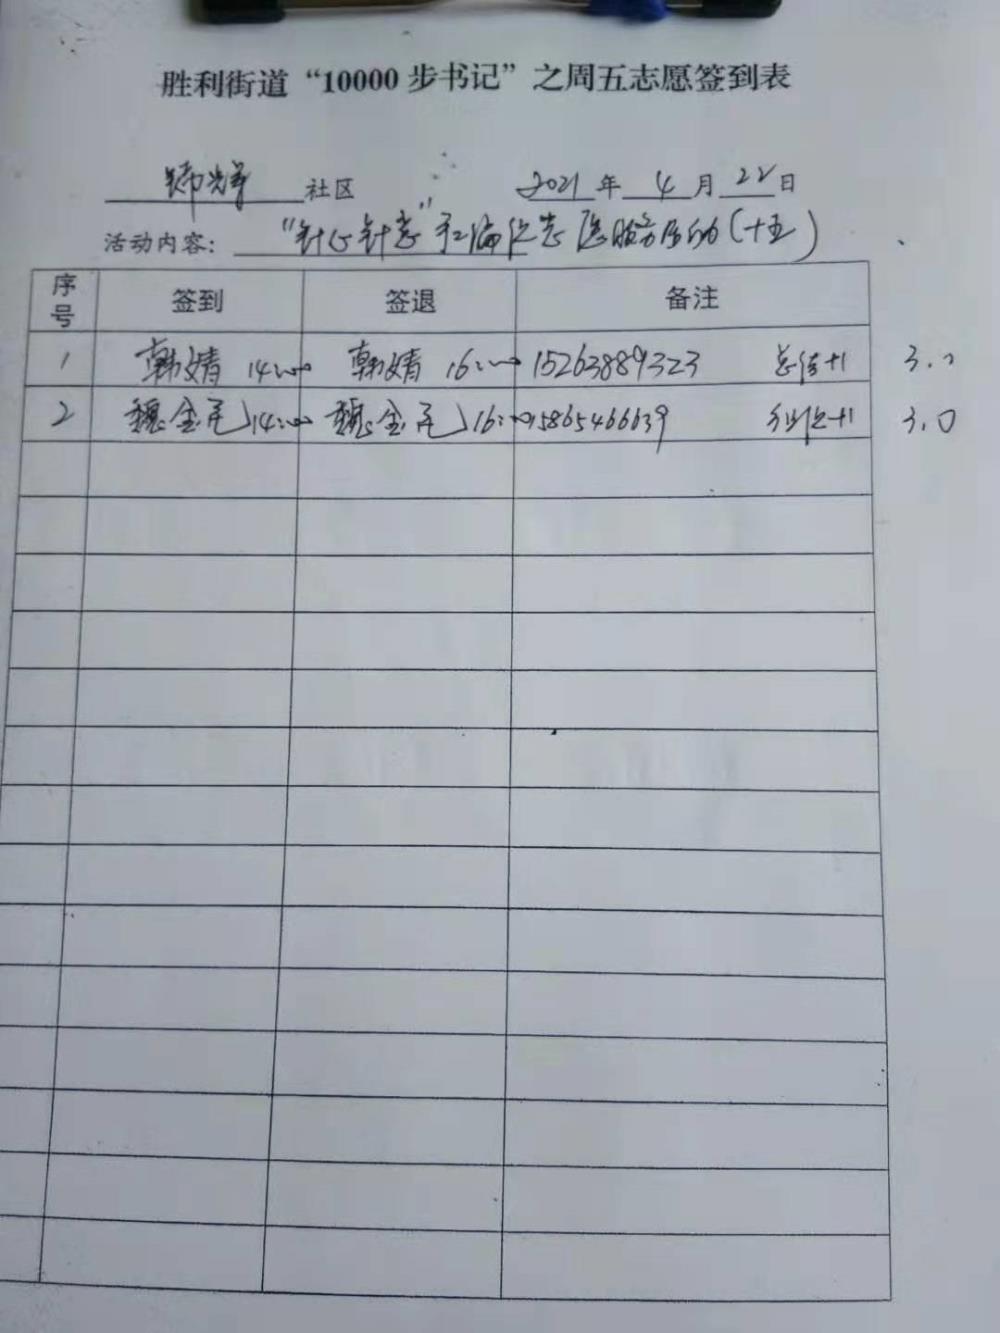 胜利街道“10000步书记”之周五志愿签到表
锦华 社区 2021年4月22日
活动内容：“针心针意”手编织志愿服务活动（十五）
序号 签到 签退 备注
1 韩婧 14:00 韩婧 16:00 15263889323 总结+1 3.0
2 魏金 14:00 魏金 16:00 15865466639 +1 3.0